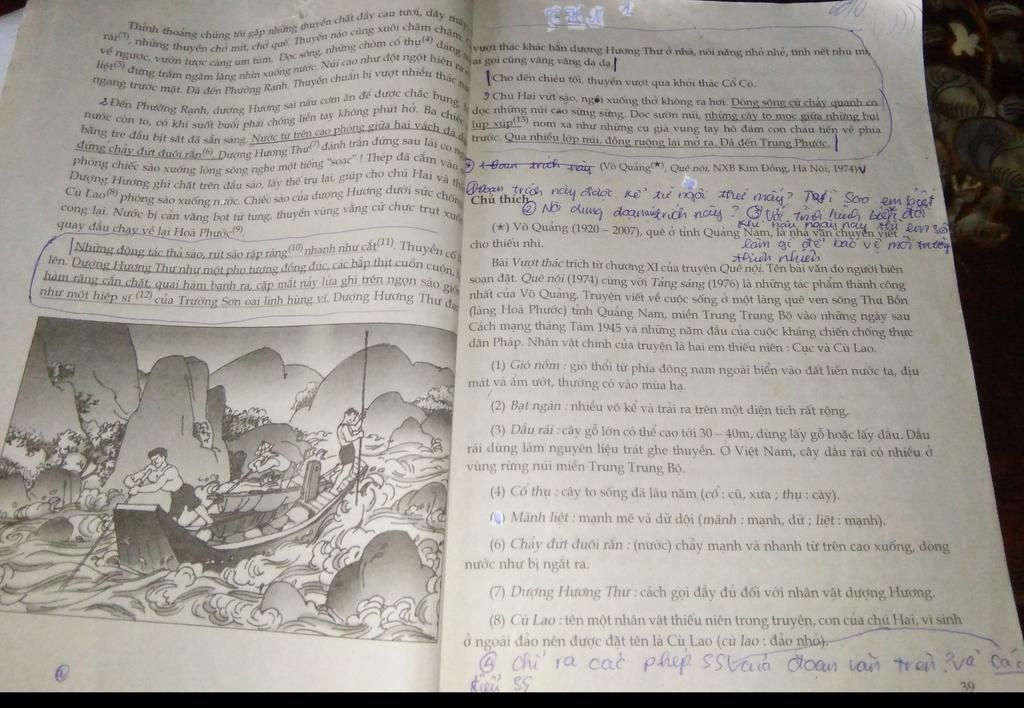 Thỉnh thoảng chúng tôi gặp những thuyền chất đầy cau tươi, dây mây
rái(3), những thuyền chở mít, chở quế. Thuyền nào cũng xuôi chầm chậm.
về ngược, vườn tược càng um tùm. Dọc sông, những chòm cổ thụ(4) dáng
liệt(5) đứng trầm ngâm lặng nhìn xuống nước. Núi cao như đột ngột hiện ra
ngang trước mặt. Đã đến Phường Rạnh. Thuyền chuẩn bị vượt nhiều thác
2 Đến Phường Rạnh, dượng Hương sai nấu cơm ăn để được chắc bụng.
nước còn to, có khi suốt buổi phải chống liền tay không phút hở. Ba chiếc
bằng tre đầu bịt sắt đã sẵn sàng. Nước từ trên cao phóng giữa hai vách đá
đứng chảy đứt đuôi rắn(6). Dượng Hương Thư(7) đánh trần đứng sau lái co
phóng chiếc sào xuống lòng sông nghe một tiếng "soạc" ! Thép đã cắm vào
Dượng Hương ghì chặt trên đầu sào, lấy thế trụ lại, giúp cho chú Hai và
Cù Lao(8) phóng sào xuống nước. Chiếc sào của dượng Hương dưới sức chống
cong lại. Nước bị cản văng bọt tứ tung, thuyền vùng vằng cứ chực trụt
quay đầu chạy về lại Hoà Phước(9).
Những động tác thả sào, rút sào rập ràng(10) nhanh như cắt(11). Thuyền cố
lên. Dượng Hương Thư như một pho tượng đồng đúc, các bắp thịt cuồn cuộn,
hàm răng cắn chặt, quai hàm bạnh ra, cặp mắt nảy lửa ghì trên ngọn sào
như một hiệp sĩ (12) của Trường Sơn oai linh hùng vĩ. Dượng Hương Thư
vượt thác khác hẳn dượng Hương Thư ở nhà, nói năng nhỏ nhẻ, tính nết nhu mì,
ai gọi cũng vâng vâng dạ dạ.
Cho đến chiều tối, thuyền vượt qua khỏi thác Cổ Cò.
3 Chú Hai vứt sào, ngồi xuống thở không ra hơi. Dòng sông cứ chảy quanh co
dọc những núi cao sừng sững. Dọc sườn núi, những cây to mọc giữa những bụi
lúp xúp(13) nom xa như những cụ già vung tay hô đám con cháu tiến về phía
trước. Qua nhiều lớp núi, đồng ruộng lại mở ra. Đã đến Trung Phước.
(Võ Quảng(★), Quê nội, NXB Kim Đồng, Hà Nội, 1974)
① Đoạn trích này được kể từ ngôi thứ mấy? Tại sao em biết
Chú thích
② Nội dung đoạn trích này? ③ Với tình hình biến đổi
khí hậu ngày nay thì em sẽ
(★) Võ Quảng (1920 – 2007), quê ở tỉnh Quảng Nam, là nhà văn chuyên viết
làm gì để bảo vệ môi trường
cho thiếu nhi.
thiên nhiên
Bài Vượt thác trích từ chương XI của truyện Quê nội. Tên bài văn do người biên
soạn đặt. Quê nội (1974) cùng với Tảng sáng (1976) là những tác phẩm thành công
nhất của Võ Quảng. Truyện viết về cuộc sống ở một làng quê ven sông Thu Bồn
(làng Hoà Phước) tỉnh Quảng Nam, miền Trung Trung Bộ vào những ngày sau
Cách mạng tháng Tám 1945 và những năm đầu của cuộc kháng chiến chống thực
dân Pháp. Nhân vật chính của truyện là hai em thiếu niên : Cục và Cù Lao.
(1) Gió nồm : gió thổi từ phía đông nam ngoài biển vào đất liền nước ta, dịu
mát và ẩm ướt, thường có vào mùa hạ.
(2) Bạt ngàn : nhiều vô kể và trải ra trên một diện tích rất rộng.
(3) Dầu rái : cây gỗ lớn có thể cao tới 30 – 40m, dùng lấy gỗ hoặc lấy dầu. Dầu
rái dùng làm nguyên liệu trát ghe thuyền. Ở Việt Nam, cây dầu rái có nhiều ở
vùng rừng núi miền Trung Trung Bộ.
(4) Cổ thụ : cây to sống đã lâu năm (cổ : cũ, xưa ; thụ : cây).
Mãnh liệt : mạnh mẽ và dữ dội (mãnh : mạnh, dữ ; liệt : mạnh).
(6) Chảy đứt đuôi rắn : (nước) chảy mạnh và nhanh từ trên cao xuống, dòng
nước như bị ngắt ra.
(7) Dượng Hương Thư : cách gọi đầy đủ đối với nhân vật dượng Hương.
(8) Cù Lao : tên một nhân vật thiếu niên trong truyện, con của chú Hai, vì sinh
ở ngoài đảo nên được đặt tên là Cù Lao (cù lao : đảo nhỏ).
④ chỉ ra các phép SS của đoạn văn trên? và các
kiểu SS
39